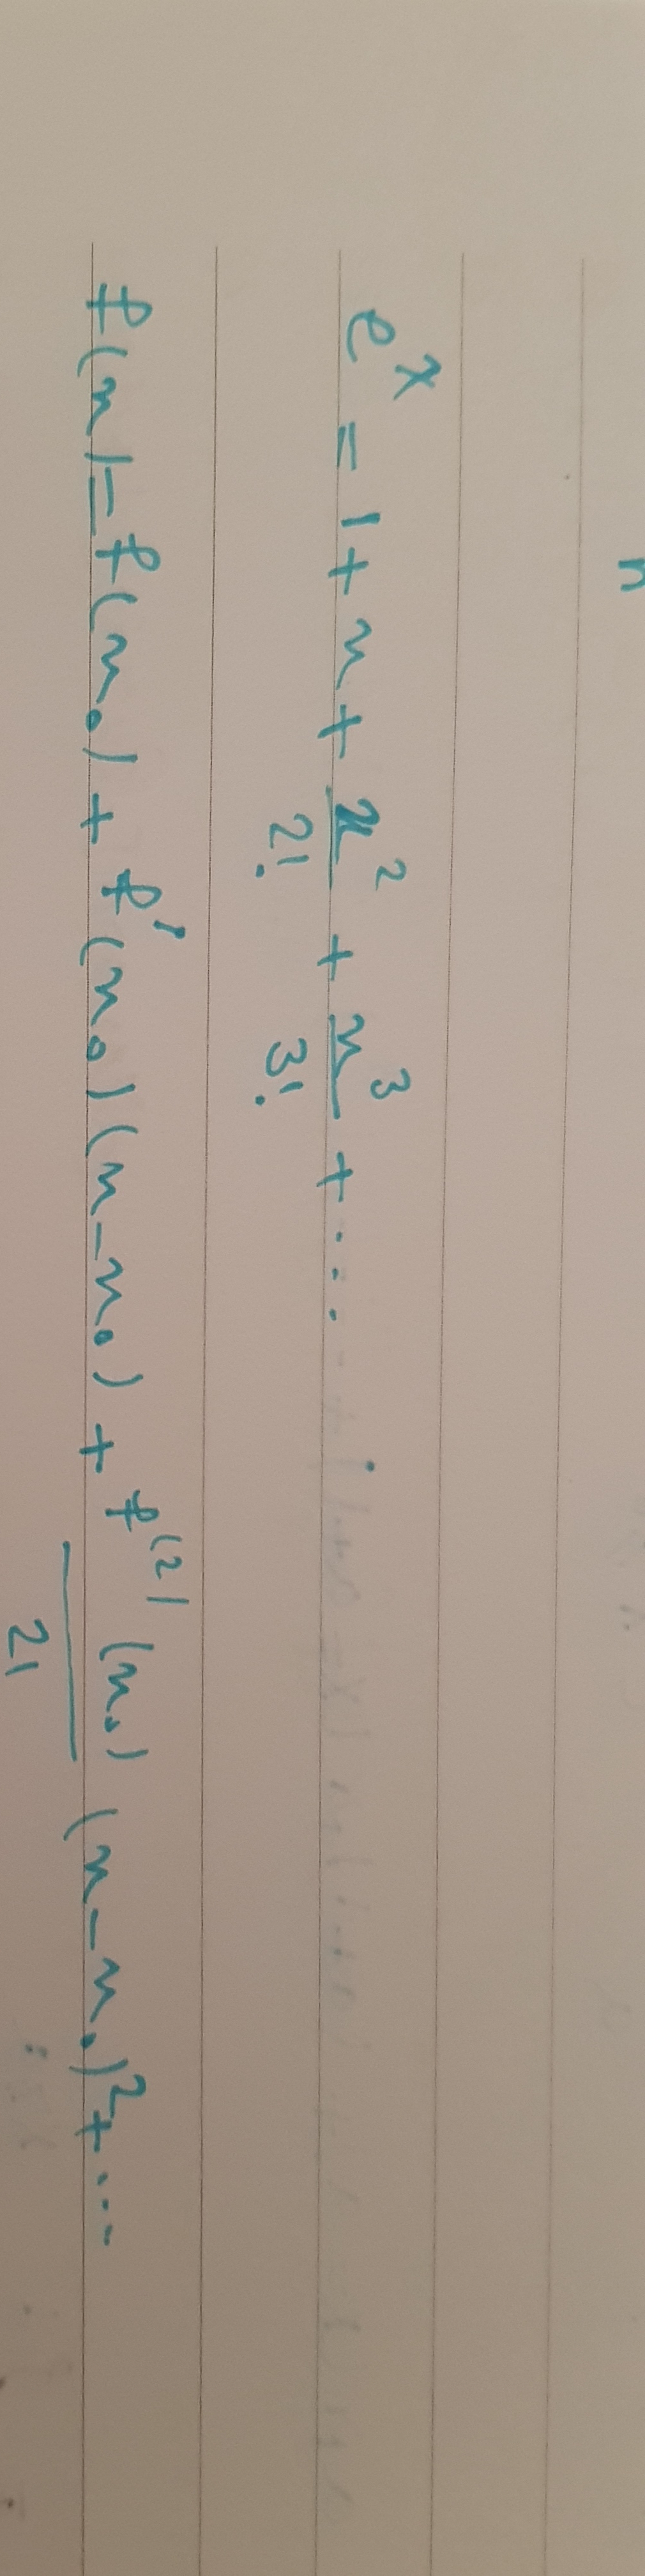 e^x = 1 + x + x^2/2! + x^3/3! + ...
f(x) = f(x₀) + f'(x₀)(x-x₀) + f^(2)(x₀)/2! (x-x₀)^2 + ...